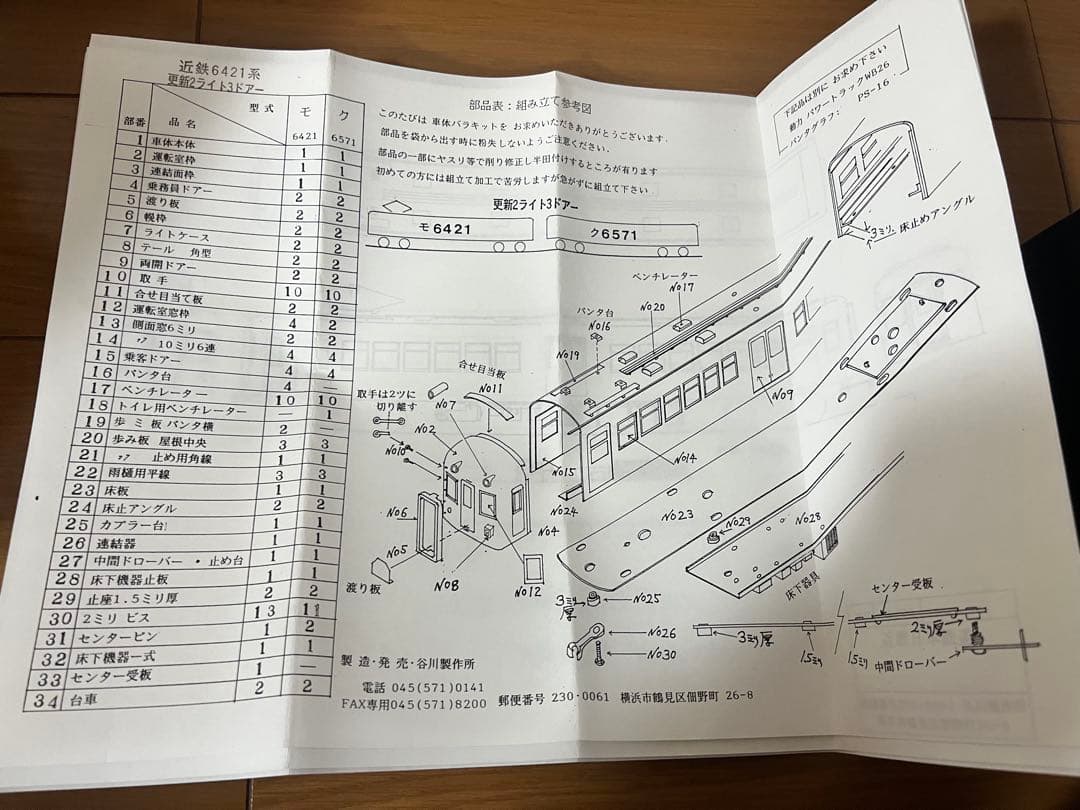 近鉄6421系
更新2ライト3ドアー
型式 モ ク
部番 品名 6421 6571
1 車体本体 1 1
2 運転室枠 1 1
3 連結面枠 1 1
4 乗務員ドアー 2 2
5 渡り板 2 2
6 幌枠 2 2
7 ライトケース 2 2
8 テール 角型 2 2
9 両開ドアー 2 2
10 取手 2 2
11 合せ目当て板 10 10
12 運転室窓枠 2 2
13 側面窓6ミリ 4 2
14 〃 10ミリ6連 2 2
15 乗客ドアー 4 4
16 パンタ台 4 —
17 ベンチレーター 10 10
18 トイレ用ベンチレーター — 1
19 歩ミ板パンタ横 2 —
20 歩み板 屋根中央 3 3
21 〃 止め用角線 1 1
22 雨樋用平線 3 3
23 床板 1 1
24 床止アングル 2 2
25 カプラー台 1 1
26 連結器 1 1
27 中間ドローバー・止め台 1 1
28 床下機器止板 1 1
29 止座1.5ミリ厚 2 2
30 2ミリビス 13 11
31 センターピン 1 2
32 床下機器一式 1 1
33 センター受板 1 —
34 台車 2 2
部品表:組み立て参考図
このたびは 車体バラキットを お求めいただきありがとうございます.
部品を袋から出す時に粉失しないようご注意ください.
部品の一部にヤスリ等で削り修正し半田付けするところが有ります
初めての方には組立て加工で苦労しますが急がずに組立て下さい
更新2ライト3ドアー
モ6421
ク6571
下記品は別に お求め下さい
動力 パワートラックWB26
パンタグラフ: PS-16
3ミリ. 床止めアングル
ベンチレーター
No17
パンタ台
No16
No20
No19
合せ目当板
No11
取手は2ツに
切り離す
No7
No2
No10
No9
No15
No14
No24
No6
No4
No23
No29
No28
No5
No8
No12
渡り板
床下器具
3ミリ
厚
No25
No26
No30
3ミリ厚
1.5ミリ
1.5ミリ
センター受板
2ミリ厚
中間ドローバー
製造・発売・谷川製作所
電話 045(571)0141
FAX専用045(571)8200 郵便番号 230-0061 横浜市鶴見区佃野町 26-8